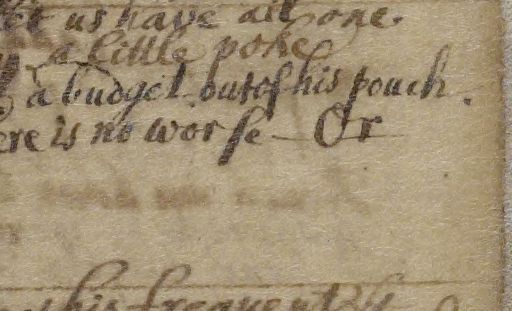 us have all one.
a little poke
a budget out of his pouch.
ere is no worse – Or
this frequently